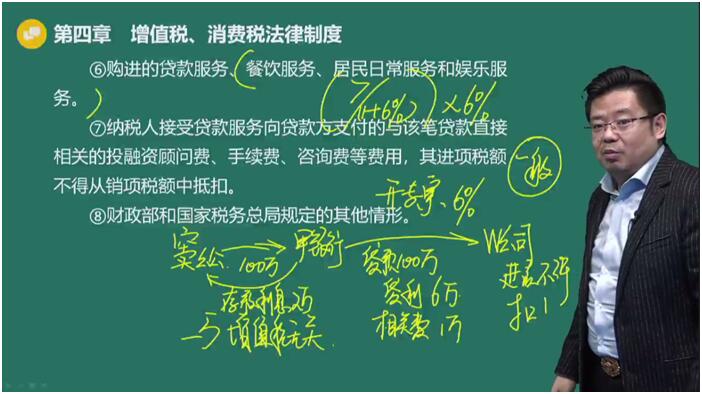 第四章 增值税、消费税法律制度
⑥购进的贷款服务、餐饮服务、居民日常服务和娱乐服
务。
7/(1+6%) ×6%
⑦纳税人接受贷款服务向贷款方支付的与该笔贷款直接
相关的投融资顾问费、手续费、咨询费等费用，其进项税额
不得从销项税额中抵扣。
一般
开专票、6%
⑧财政部和国家税务总局规定的其他情形。
100万
甲银行
贷款100万
W公司
存款利息2万
贷利6万
进项不得
与增值税无关
相关费1万
扣!